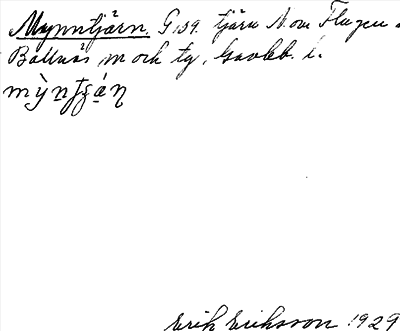 Mynntjärn. G 159. tjärn N om Flugen
Bollnäs m och tg, Gävleb. l.
Erik Eriksson 1929